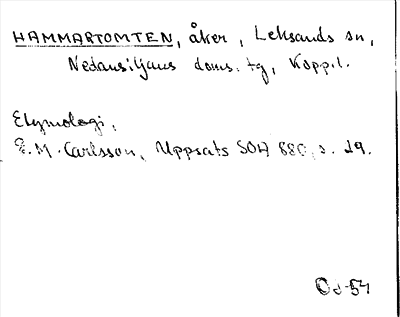 HAMMARTOMTEN, åker, Leksands sn,
Nedansiljans doms. tg, Kopp.l.
Etymologi,
E.M. Carlsson, Uppsats SOA 880, s. 29.